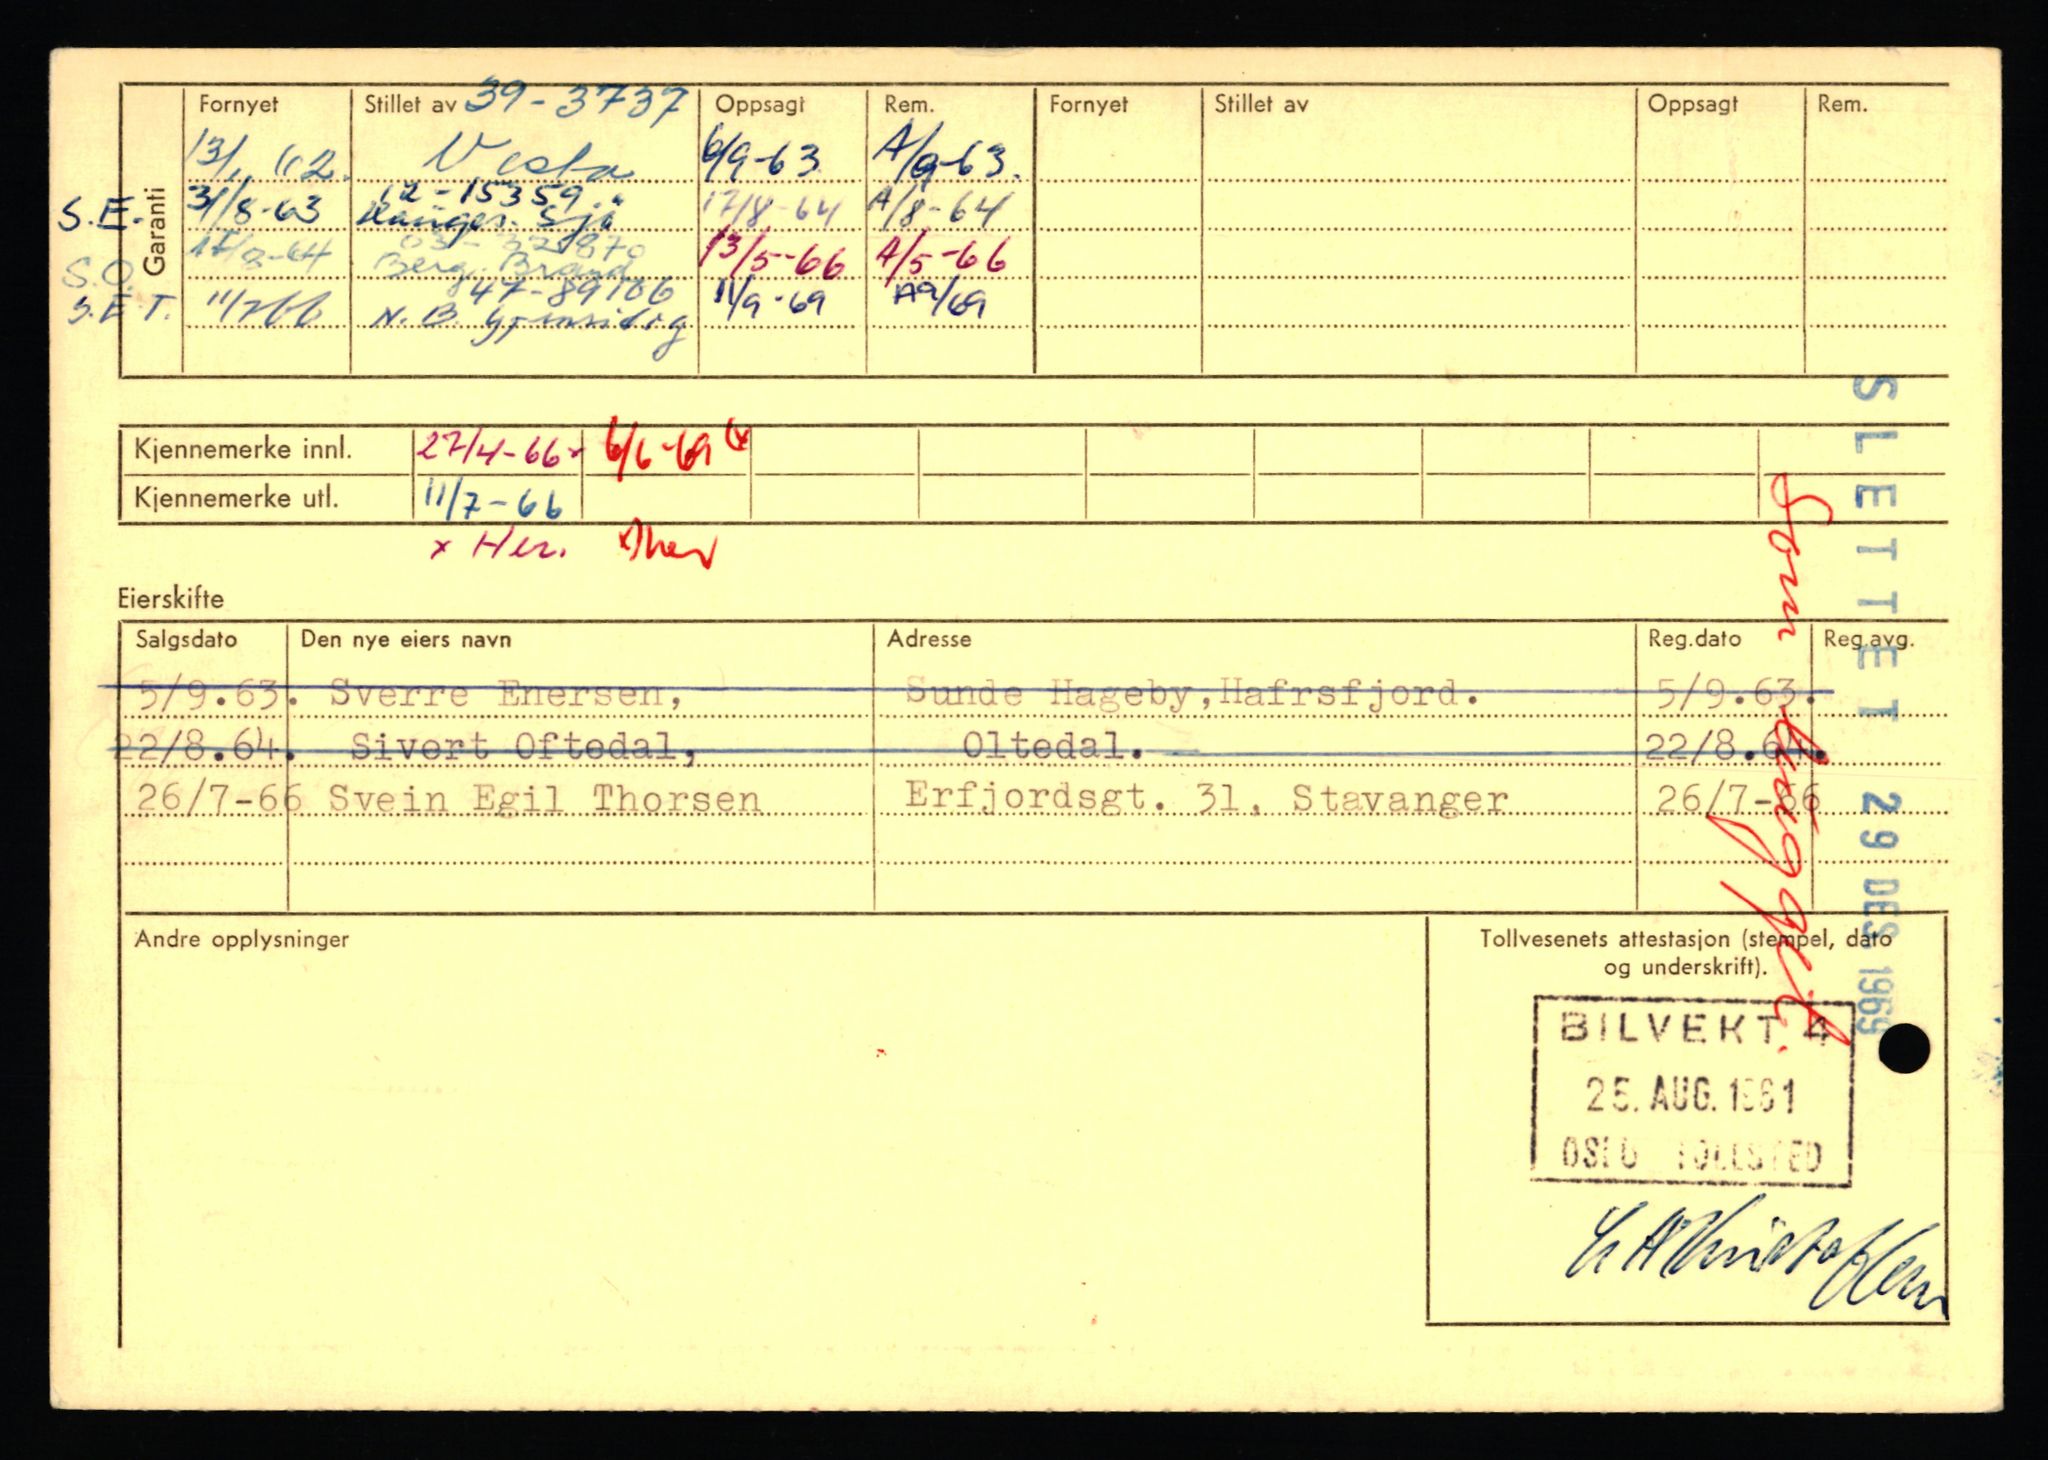 Fornyet Stillet av 39-3737 Oppsagt Rem. Fornyet Stillet av Oppsagt Rem.
Garanti
Vesta 6/9-63 A/9-63.
S.E. 31/8-63 12-15359 17/8-64 A/8-64
Sjø
S.O. 03-32870 13/5-66 A/5-66
Berg. Brand
S.E.T. 11/7 66 847-89106 11/9-69 A9/69
N.B. Gjensidig
Kjennemerke innl. 27/4-66 x 6/6-69
Kjennemerke utl. 11/7-66
x Her.
Eierskifte
Salgsdato Den nye eiers navn Adresse Reg.dato Reg.avg.
5/9.63. Sverre Enersen, Sunde Hageby,Hafrsfjord. 5/9.63.
22/8.64. Sivert Oftedal, Oltedal. 22/8.64.
26/7-66 Svein Egil Thorsen Erfjordsgt. 31, Stavanger 26/7-66
SLETTET 29 DES. 1969
Som hugget.
Andre opplysninger
Tollvesenets attestasjon (stempel, dato
og underskrift).
BILVEKT 4
25. AUG. 1961
OSLO TOLLSTED